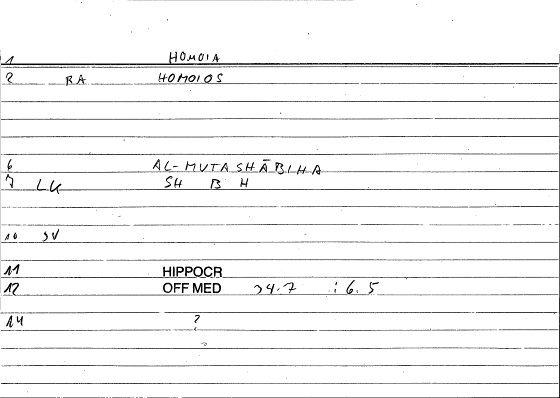 1 HOMOIA
2 RA HOMOIOS
6 AL-MUTASHĀBIHA
7 LK SH B H
10 SV
11 HIPPOCR
12 OFF MED 34.7 : 6.5
14 ?